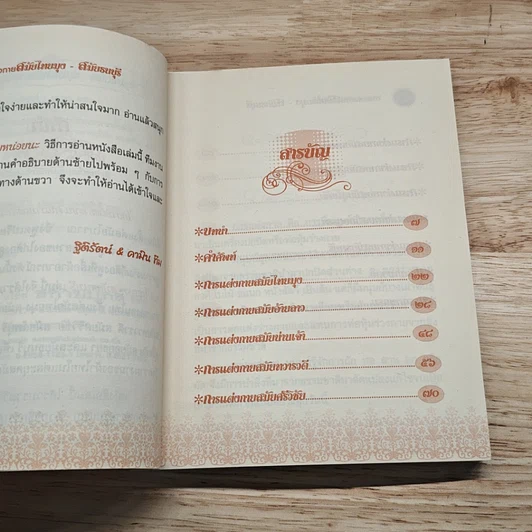 สมัยไทยมุง - สมัยธนบุรี
ใจง่ายและทำให้น่าสนใจมาก อ่านแล้วสนุก
หน่อยนะ วิธีการอ่านหนังสือเล่มนี้ ทีมงาน
านคำอธิบายด้านซ้ายไปพร้อม ๆ กับการ
ทางด้านขวา จึงจะทำให้อ่านได้เข้าใจและ
ฐิติรัตน์ &
สารบัญ
*บทนำ ๗
*คำศัพท์ ๑๑
*การแต่งกายสมัยไทยมุง ๒๒
*การแต่งกายสมัยอ้ายลาว ๒๘
*การแต่งกายสมัยน่านเจ้า ๔๘
*การแต่งกายสมัยทวารวดี ๕๖
*การแต่งกายสมัยศรีวิชัย ๗๐